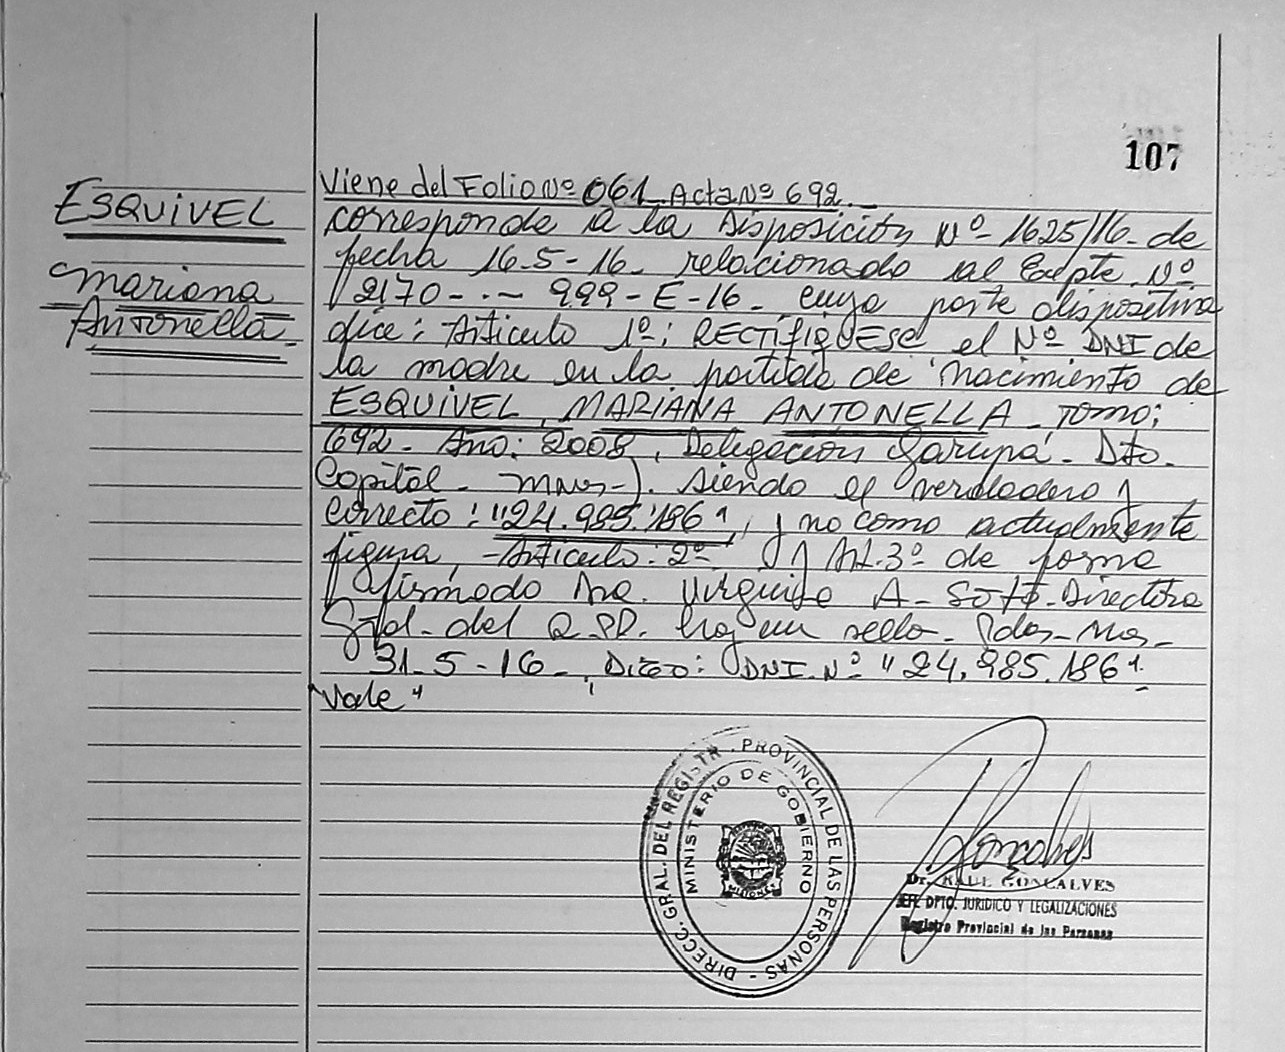 107
ESQUIVEL
Mariana
Antonella.
Viene del Folio Nº 061. Acta Nº 692.
Corresponde a la Disposición Nº 1625/16- de
fecha 16-5-16- relacionado al Expte. Nº
2170-.- 999-E-16- cuya parte dispositiva
dice: Articulo 1º: RECTIFIQUESE el Nº DNI de
la madre en la partida de nacimiento de
ESQUIVEL, MARIANA ANTONELLA, Tomo:
692- Año: 2008, Delegación Garupá- Dto.
Capital- Mnes-). siendo el verdadero y
correcto: "24.985.186", y no como actualmente
figura,-Articulo: 2º y Art. 3º de forma
firmado Dra. Virginia A- Soto-Directora
Gral- del R.P.P. hay un sello- Pdas-Mnes-
31-5-16-, Digo: DNI. Nº "24.985.186".
Vale"
DIRECC. GRAL. DEL REGISTR. PROVINCIAL DE LAS PERSONAS -
MINISTERIO DE GOBIERNO
MISIONES
Goncalves
Dr. RAUL GONCALVES
JEFE DPTO. JURIDICO Y LEGALIZACIONES
Registro Provincial de las Personas